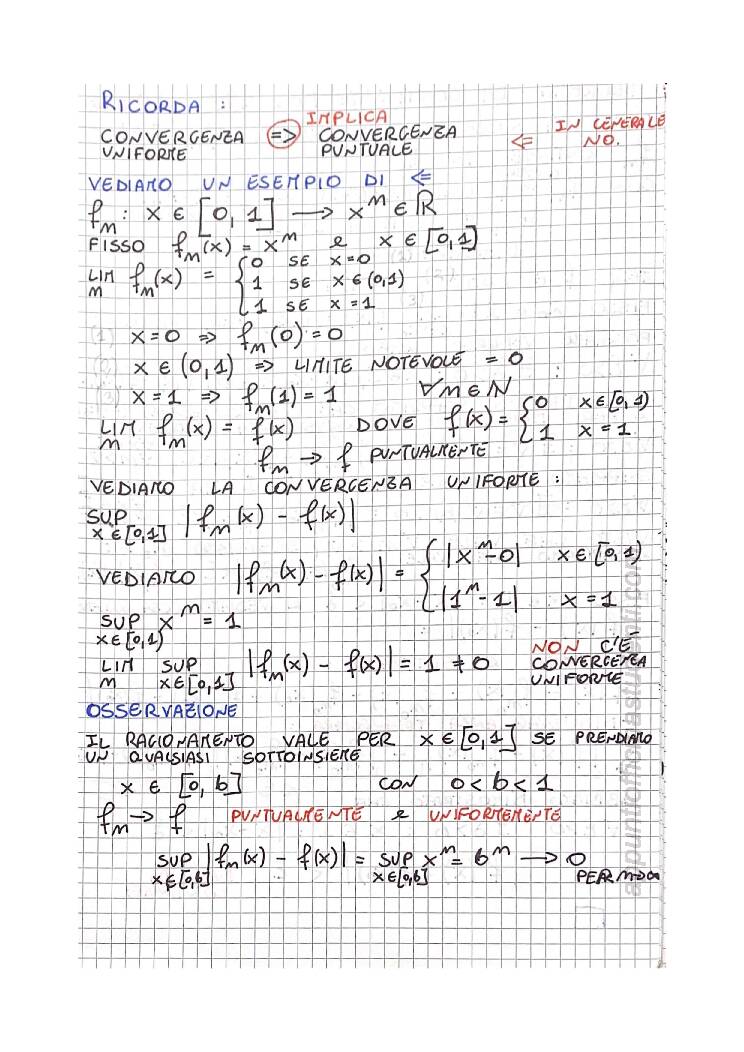 RICORDA :
CONVERGENZA UNIFORME => IMPLICA CONVERGENZA PUNTUALE <= IN GENERALE NO.
VEDIAMO UN ESEMPIO DI <=
fₙ : x ∈ [0,1] → xⁿ ∈ ℝ
FISSO fₙ(x) = xⁿ e x ∈ [0,1]
LIM n fₙ(x) = { 0 SE x=0
1 SE x ∈ (0,1)
1 SE x = 1
(1) x=0 => fₙ(0) = 0
(2) x ∈ (0,1) => LIMITE NOTEVOLE = 0
(3) x = 1 => fₙ(1) = 1 ∀n ∈ N
LIM n fₙ(x) = f(x) DOVE f(x) = { 0 x ∈ [0,1)
1 x = 1
fₙ → f PUNTUALMENTE
VEDIAMO LA CONVERGENZA UNIFORME :
SUP x ∈ [0,1] |fₙ(x) - f(x)|
VEDIAMO |fₙ(x) - f(x)| = { |xⁿ-0| x ∈ [0,1)
|1ⁿ-1| x = 1
SUP x∈[0,1) xⁿ = 1
LIM n SUP x∈[0,1] |fₙ(x) - f(x)| = 1 ≠ 0 NON C'È CONVERGENZA UNIFORME
OSSERVAZIONE
IL RAGIONAMENTO VALE PER x ∈ [0,1] SE PRENDIAMO
UN QUALSIASI SOTTOINSIEME
x ∈ [0,b] CON 0<b<1
fₙ → f PUNTUALMENTE e UNIFORMEMENTE
SUP x∈[0,b] |fₙ(x) - f(x)| = SUP x∈[0,b] xⁿ = bⁿ → 0
PER n→∞